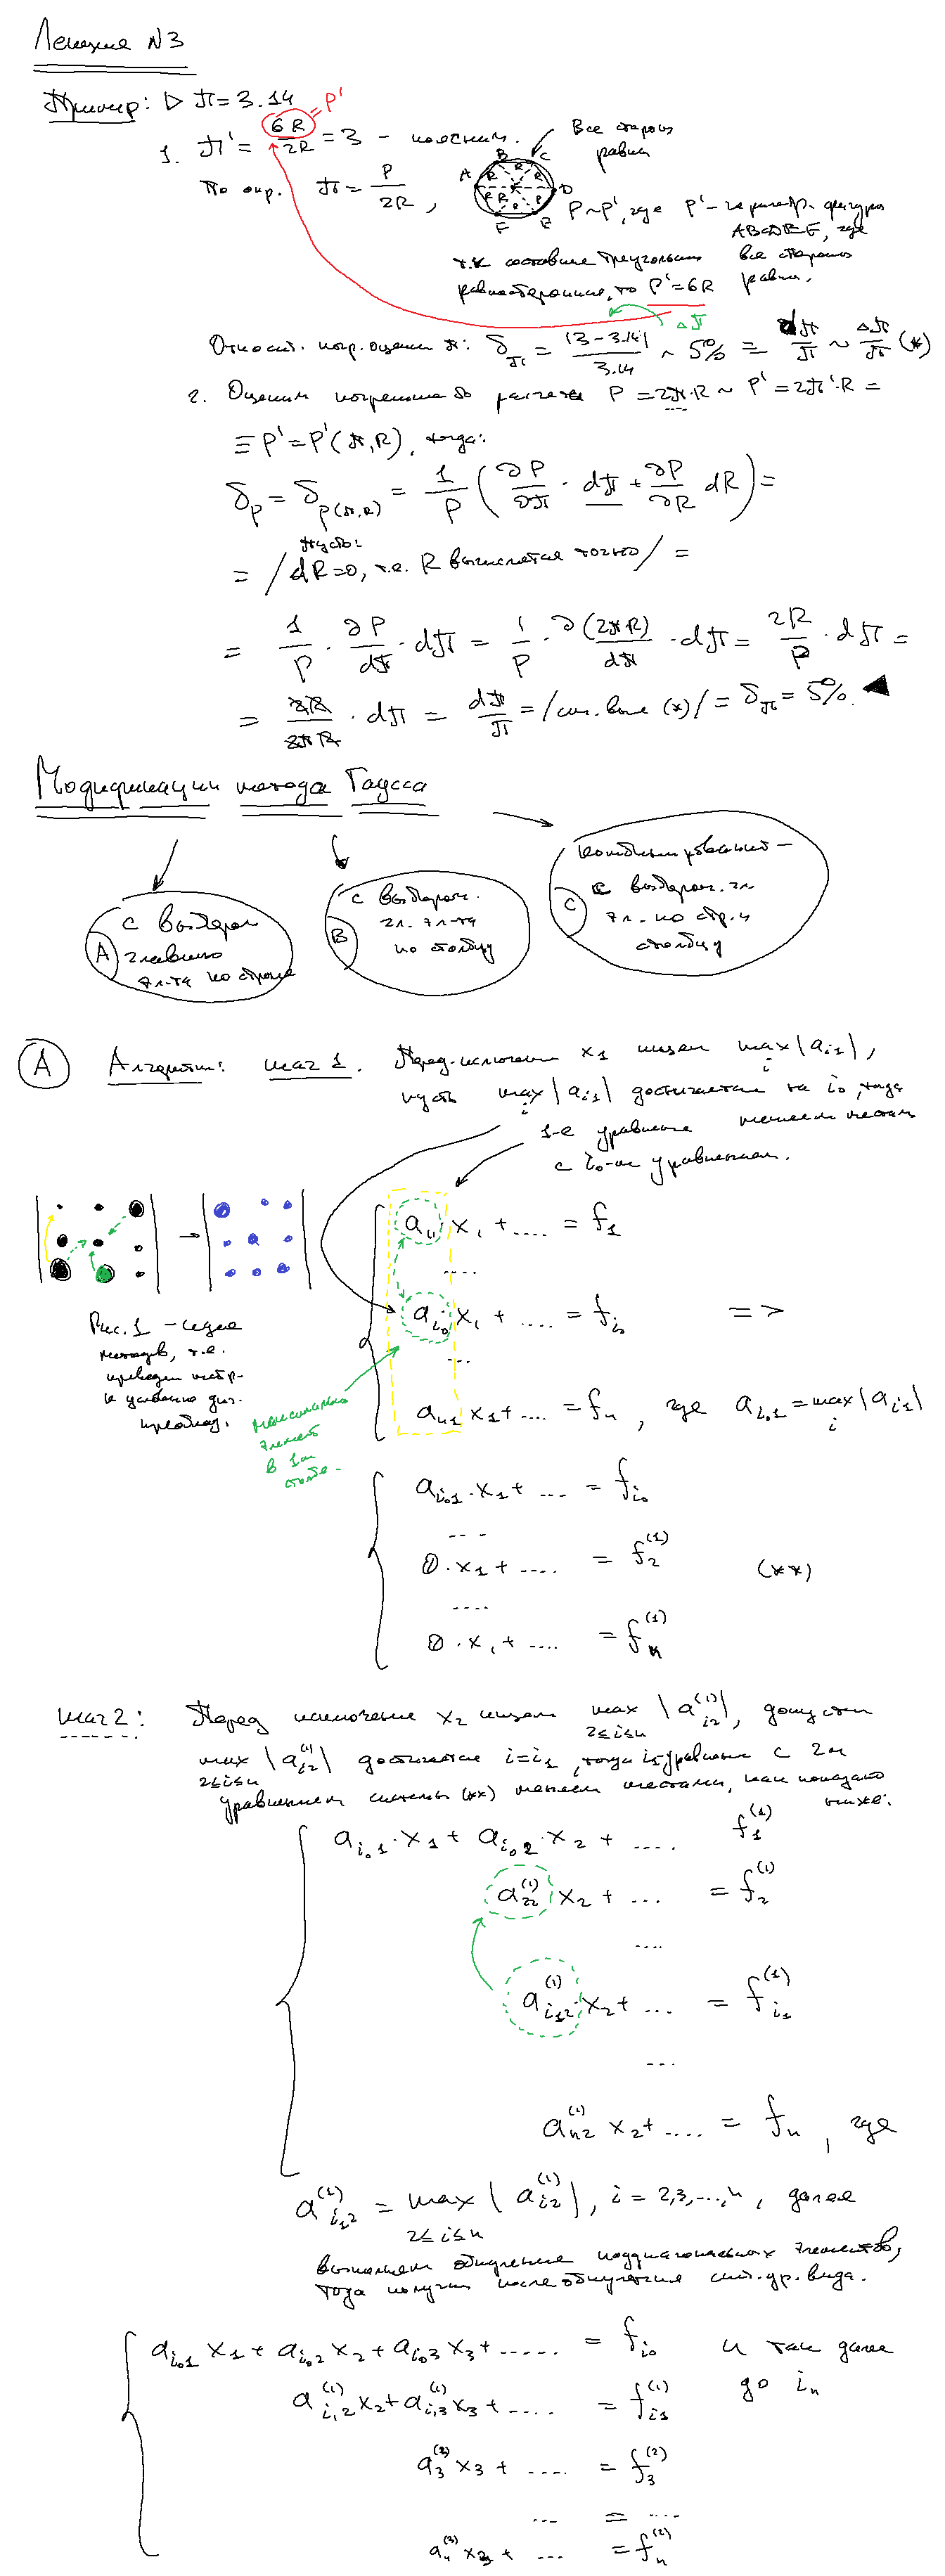 Лекция N3
Пример: ▷ π = 3.14
1. π' = 6R / 2R = 3 - поясним.
= P'
Все стороны
равны
По опр. π = P / 2R ,
A B C D E F
R R R R R R
P ~ P', где P' - периметр фигуры
ABCDEF, где
все стороны
равны.
т.к. составные треугольники
равносторонние, то P' = 6R
Δπ
Относит. погр. оценки π: δ_π = |3 - 3.14| / 3.14 ~ 5% = dπ / π ~ Δπ / π (*)
2. Оценим погрешность расчета P = 2π·R ~ P' = 2π'·R =
≡ P' = P'(π, R), тогда:
δ_P = δ_P(π,R) = 1/P ( ∂P/∂π · dπ + ∂P/∂R dR ) =
пусть:
= / dR = 0, т.е. R вычисляется точно / =
= 1/P · ∂P/dπ · dπ = 1/P · ∂(2πR)/dπ · dπ = 2R/P · dπ =
= 2R/2πR · dπ = dπ/π = / см. выше (*) / = δ_π = 5%. ◀
Модификации метода Гаусса
A с выбором
главного
эл-та по строке
B с выбором
гл. эл-та
по столбцу
C комбинированный -
с выбором гл.
эл. по стр. и
столбцу
A Алгоритм: шаг 1. Перед исключением x₁ ищем max_i |a_i1|,
пусть max_i |a_i1| достигается на i₀, тогда
1-е уравнение меняем местами
с i₀-м уравнением.
a₁₁ x₁ + .... = f₁
....
a_i₀ x₁ + .... = f_i₀ =>
...
a_n1 x₁ + .... = f_n , где a_i₀1 = max_i |a_i1|
Рис. 1 - идея
методов, т.е.
приведен матр-
к условию диаг.
преоблад.
максимальный
элемент
в 1-м
столбе.
a_i₀1 · x₁ + ... = f_i₀
....
0 · x₁ + .... = f₂⁽¹⁾ (**)
....
0 · x₁ + .... = f_n⁽¹⁾
шаг 2: Перед исключение x₂ ищем max_{2≤i≤n} |a_i2⁽¹⁾|, допустим
max_{2≤i≤n} |a_i2⁽¹⁾| достигается i = i₁, тогда i₁ уравнение с 2м
уравнением системы (**) меняем местами, как показано
ниже:
a_i₀1 · x₁ + a_i₀2 · x₂ + .... f₁⁽¹⁾
a₂₂⁽¹⁾ x₂ + ... = f₂⁽¹⁾
....
a_i₁2⁽¹⁾ x₂ + ... = f_i₁⁽¹⁾
...
a_n2⁽¹⁾ x₂ + .... = f_n , где
a_i₁2⁽¹⁾ = max_{2≤i≤n} |a_i2⁽¹⁾|, i = 2,3,...,n, далее
выполняем обнуление поддиагональных элементов,
тогда получим после обнуления сист. ур. вида.
a_i₀1 x₁ + a_i₀2 x₂ + a_i₀3 x₃ + ..... = f_i₀ и так далее
a_i₁2⁽¹⁾ x₂ + a_i₁3⁽¹⁾ x₃ + .... = f_i₁⁽¹⁾ до i_n
a₃⁽²⁾ x₃ + .... = f₃⁽²⁾
... = ....
a_n⁽²⁾ x₃ + ... = f_n⁽²⁾